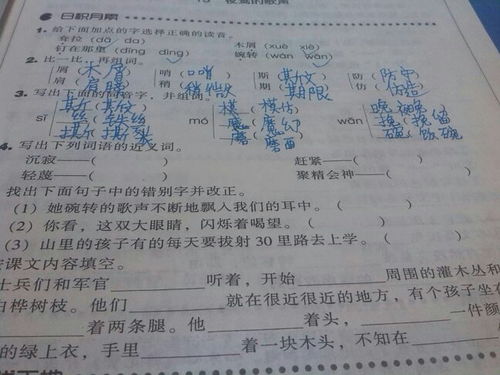 夜莺的歌声
日积月累
1. 给下面加点的字选择正确的读音。
耷拉(dā da) 木屑(xuè xiè)
钉在那里(dīng dìng) 婉转(wǎn wàn)
2. 比一比，再组词。
屑(木屑) 哨(口哨) 斯(斯文) 防(防守)
肩(肩膀) 稍(稍微) 期(期限) 仿(仿造)
3. 写出下面的同音字，并组词。
斯(斯文) 模(模仿) 晚
sī 丝 mó 魔(魔幻) wǎn 挽(挽留)
撕(撕裂) 磨 碗(饭碗)
4. 写出下列词语的近义词。
沉寂——( ) 赶紧——( )
轻蔑——( ) 聚精会神——( )
找出下面句子中的错别字并改正。
(1) 她碗转的歌声不断地飘入我们的耳中。( )
(2) 你看，这双大眼睛，闪烁着喝望。( )
(3) 山里的孩子有的每天要拔射 30 里路去上学。( )
课文内容填空。
士兵们和军官 听着，开始 周围的灌木丛和
白桦树枝。他们 就在很近很近的地方，有个孩子坐在
着两条腿。他 着头， 一件颜
的绿上衣，手里 着一块木头，不知在